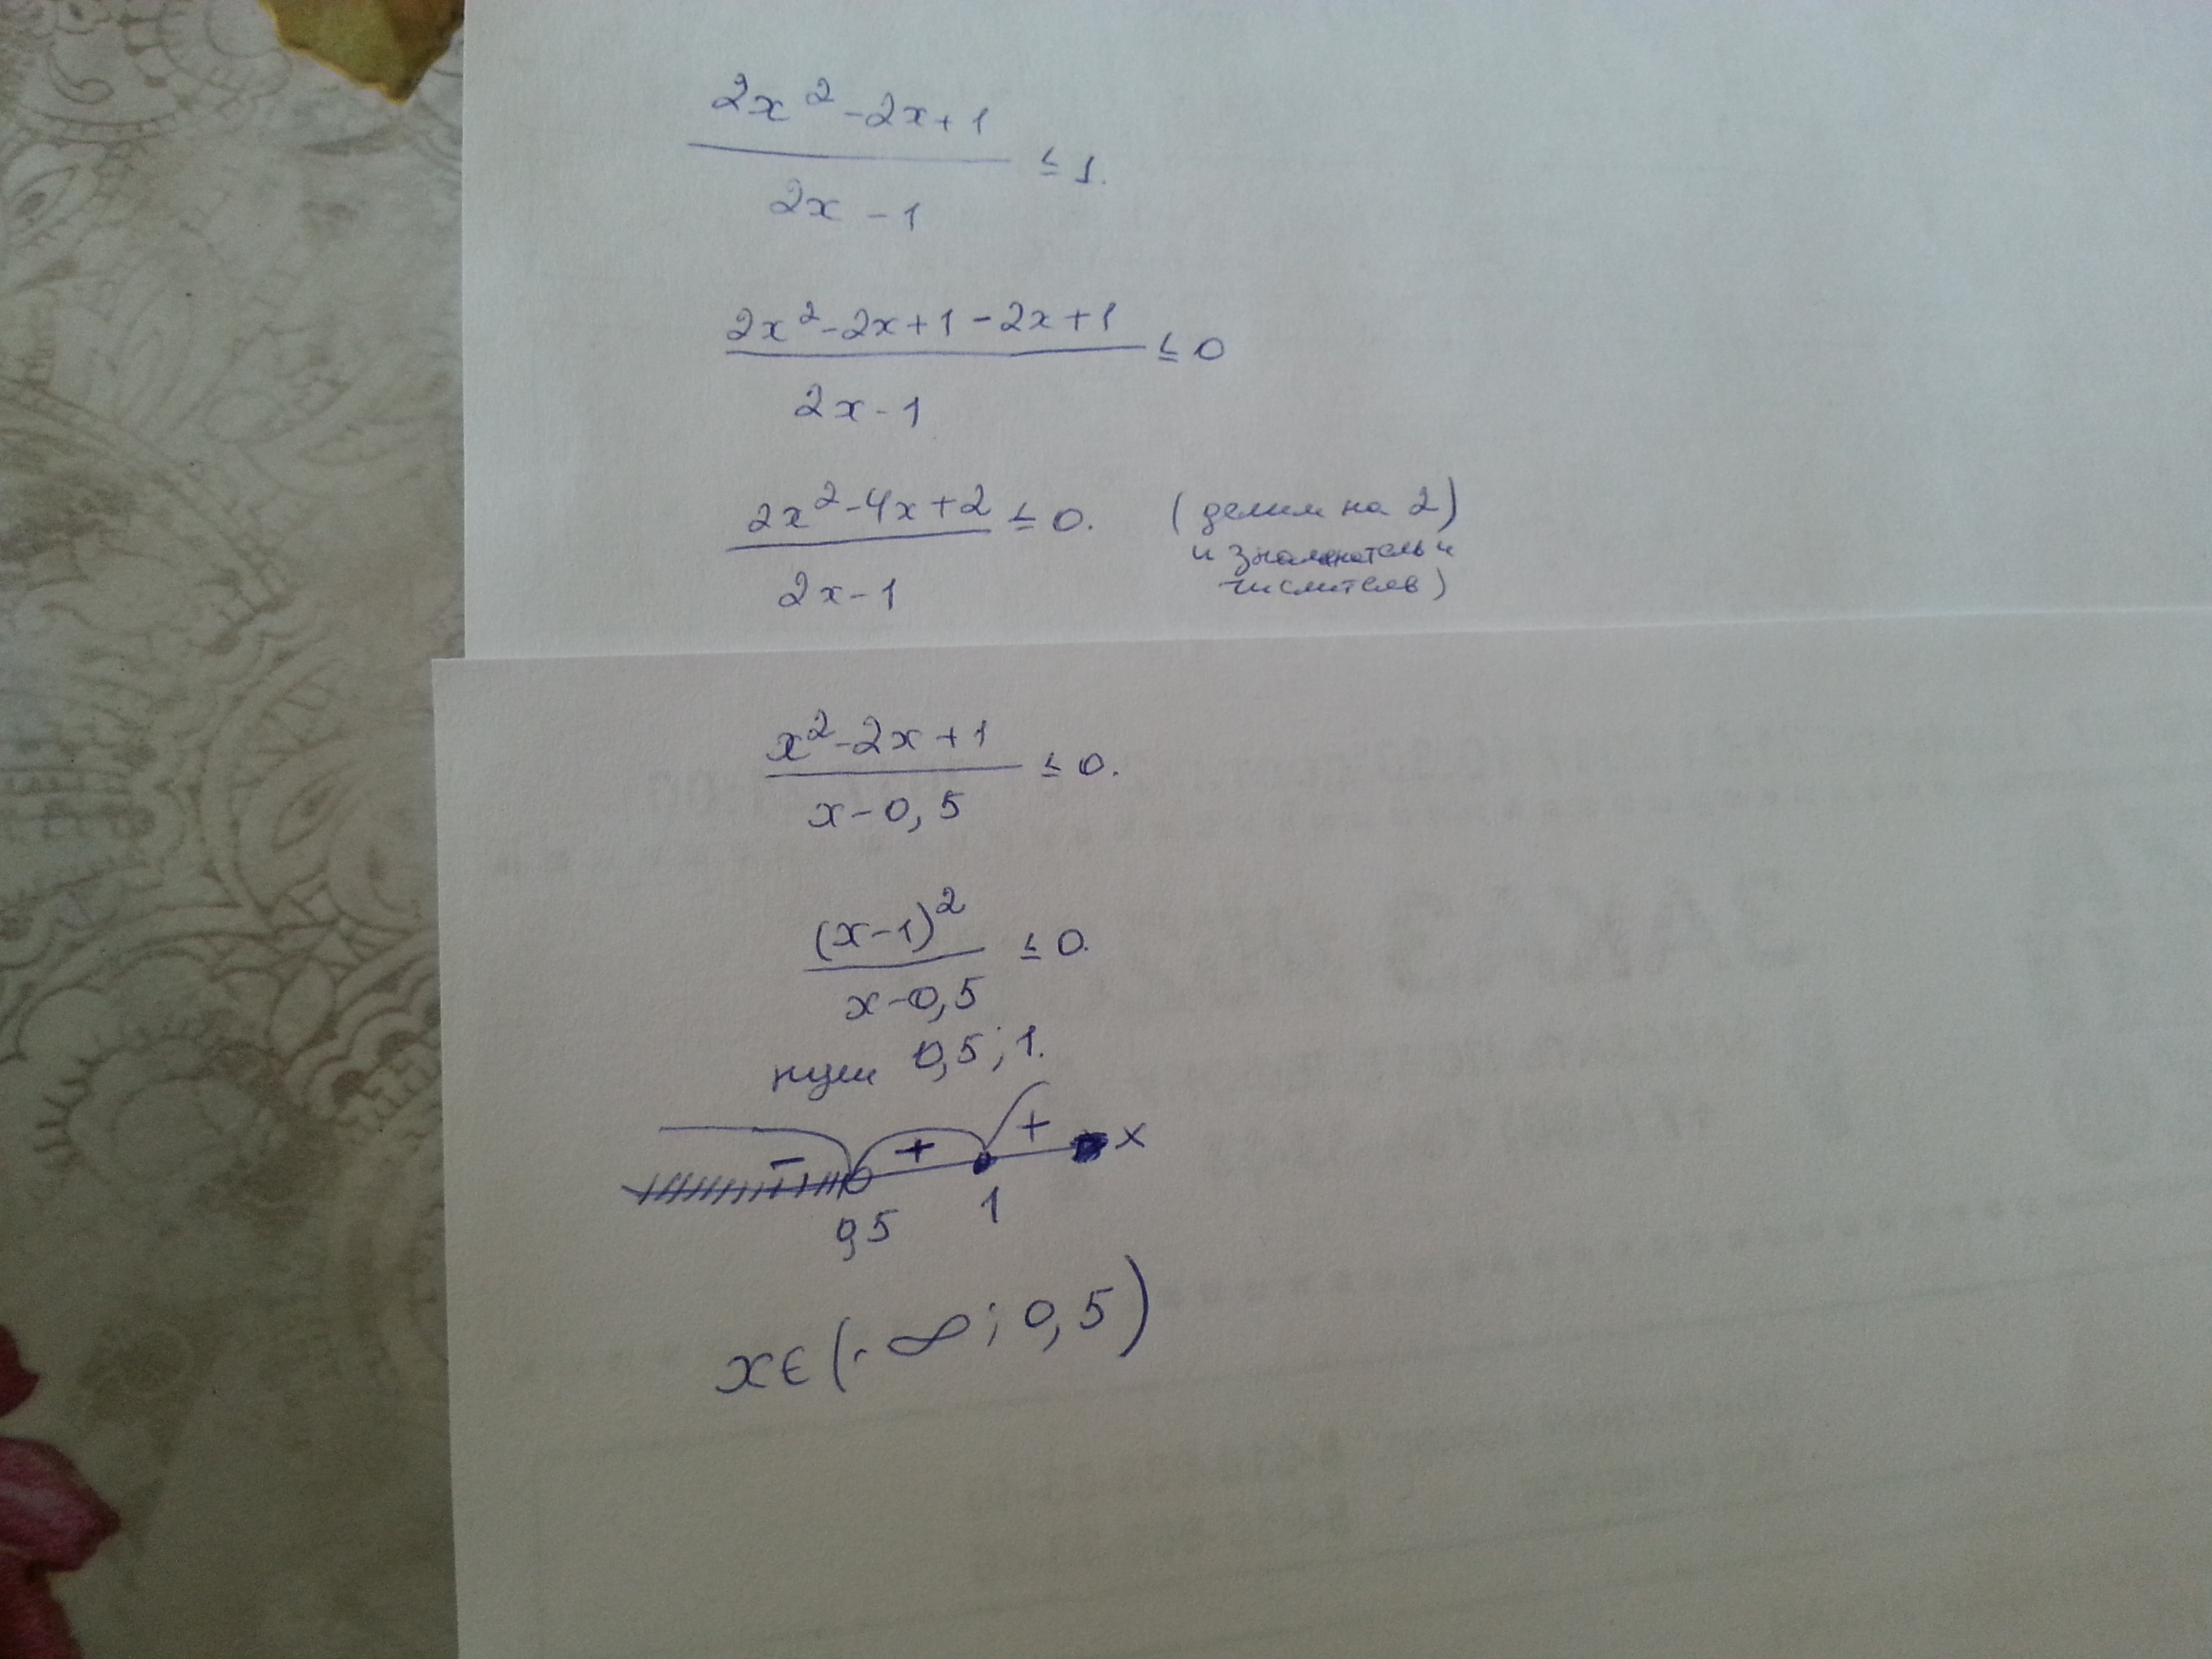 2x² - 2x + 1
2x - 1
≤ 1.
2x² - 2x + 1 - 2x + 1
2x - 1
≤ 0
2x² - 4x + 2
2x - 1
≤ 0.
(делим на 2)
и знаменатель и
числитель)
x² - 2x + 1
x - 0,5
≤ 0.
(x - 1)²
x - 0,5
≤ 0.
нули 0,5; 1.
- + + x
0,5 1
x ∈ (-∞; 0,5)